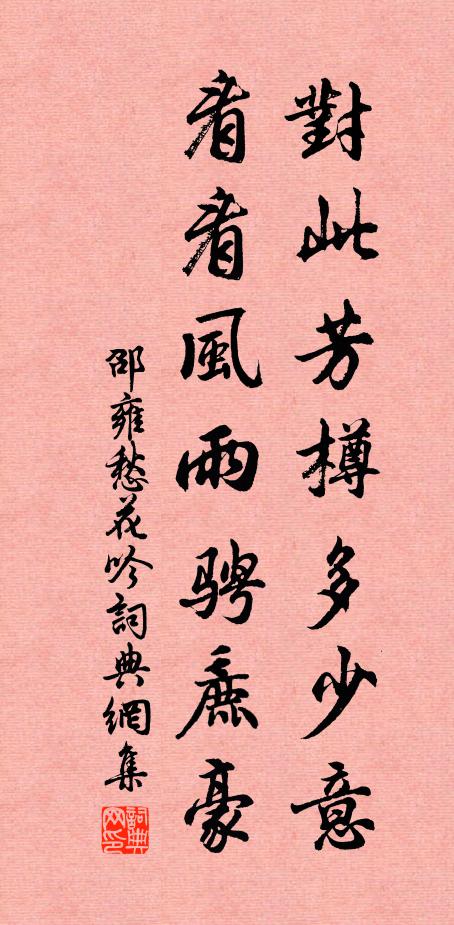 對此芳樽多少意
看看風雨騁麄豪
邵雍愁花吟詞典網集
詞典网印